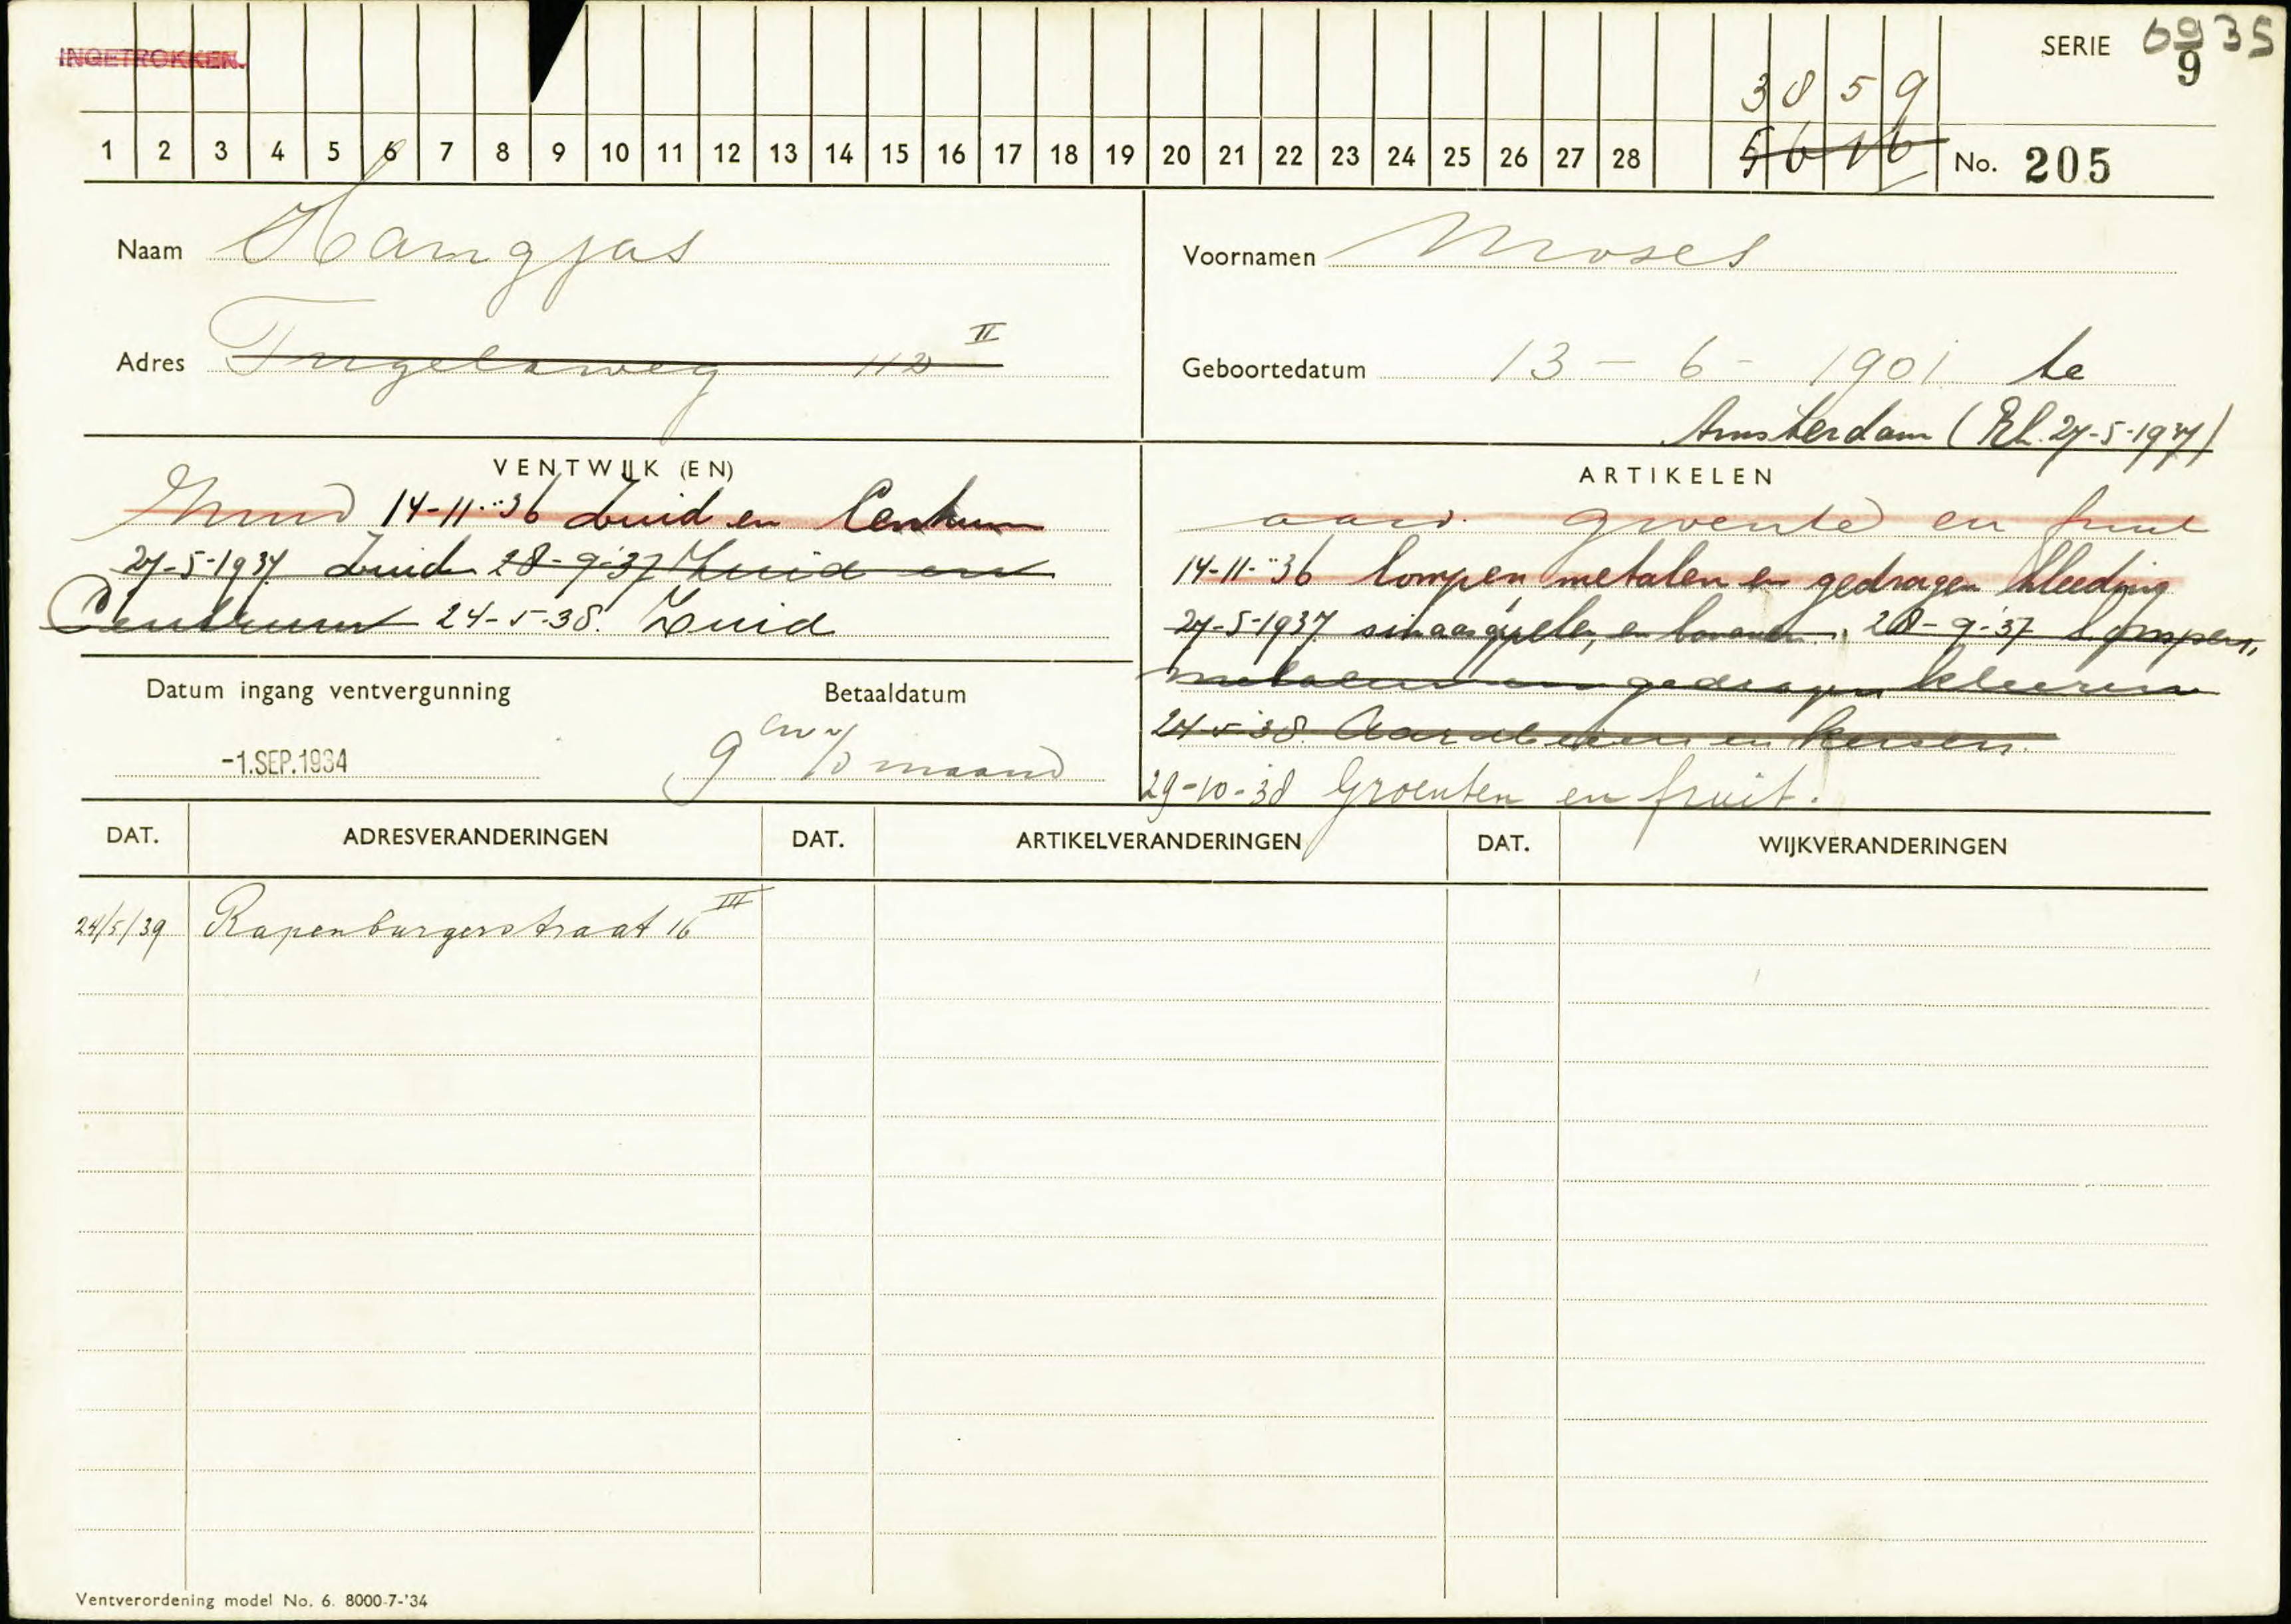 INGETROKKEN.
SERIE 6935
9
3859
1 2 3 4 5 6 7 8 9 10 11 12 13 14 15 16 17 18 19 20 21 22 23 24 25 26 27 28 5616 No. 205
Naam Hamgjas Voornamen Moses
Adres Tugelaweg 112 II Geboortedatum 13 - 6 - 1901 te
Amsterdam (Rh. 27-5-1937)
VENTWIJK (EN)
14-11-'36 Zuid en Centrum
27-5-1937 Zuid 28-9-'37 Zuid en
Centrum 24-5-38. Zuid
ARTIKELEN
aard. groente en fruit
14-11-'36 lompen, metalen en gedragen kleeding
27-5-1937 sinaasappelen, en bananen. 28-9-'37 Lompen,
metalen en gedragen kleeren
24-5-'38. Aardbeien en kersen.
29-10-'38 Groenten en fruit.
Datum ingang ventvergunning Betaaldatum
-1.SEP.1934 9 maand
DAT. ADRESVERANDERINGEN DAT. ARTIKELVERANDERINGEN DAT. WIJKVERANDERINGEN
24/5/39 Rapenburgerstraat 16 III
Ventverordening model No. 6. 8000-7-'34